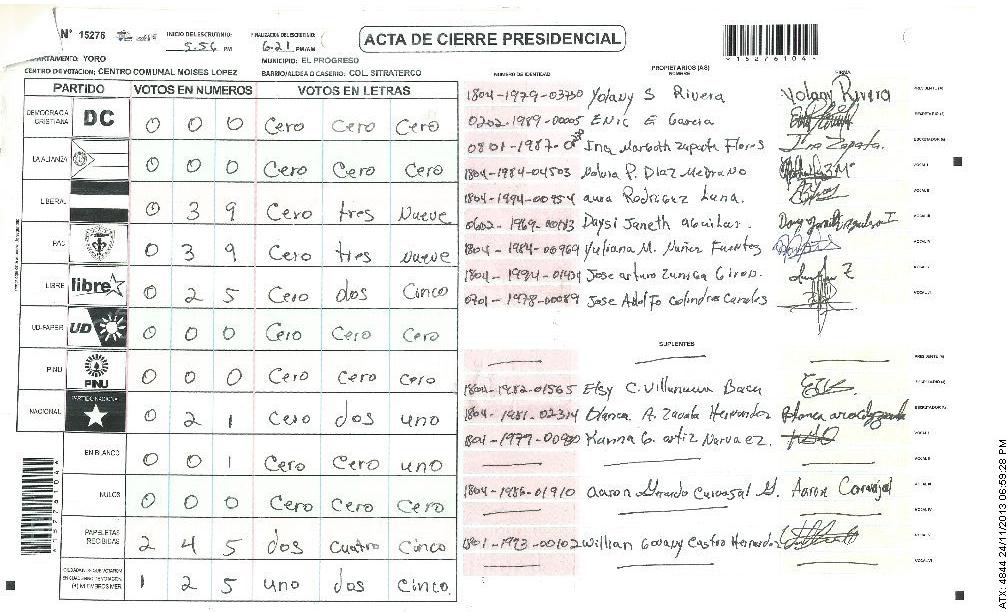 N° 15276 INICIO DEL ESCRUTINIO: 5:56 PM FINALIZACION DEL ESCRUTINIO: 6:21 PM/AM
ACTA DE CIERRE PRESIDENCIAL
*15276104*
DEPARTAMENTO: YORO MUNICIPIO: EL PROGRESO
CENTRO DE VOTACION: CENTRO COMUNAL MOISES LOPEZ BARRIO/ALDEA O CASERIO: COL. SITRATERCO
PARTIDO VOTOS EN NUMEROS VOTOS EN LETRAS
DEMOCRACIA CRISTIANA DC 0 0 0 Cero Cero Cero
LA ALIANZA 0 0 0 Cero Cero Cero
LIBERAL 0 3 9 Cero tres Nueve
PAC 0 3 9 Cero tres Nueve
LIBRE libre 0 2 5 Cero dos Cinco
UD-FAPER UD 0 0 0 Cero Cero Cero
PINU PINU 0 0 0 Cero Cero Cero
NACIONAL PARTIDO NACIONAL 0 2 1 Cero dos uno
EN BLANCO 0 0 1 Cero Cero uno
NULOS 0 0 0 Cero Cero Cero
PAPELETAS RECIBIDAS 2 4 5 dos cuatro Cinco
1 2 5 uno dos Cinco
NUMERO DE IDENTIDAD PROPIETARIOS (AS) NOMBRE FIRMA
1804-1979-03730 Yolany S Rivera Yolany Rivera PRESIDENTE (A)
0202-1989-00005 Enic E Garcia SECRETARIO (A)
0801-1987- Ina Margoth Zapata Flores Ina Zapata. ESCRUTADOR (A)
1804-1984-04503 P. Diaz Medrano VOCAL I
1804-1994-00954 Rodriguez Luna. VOCAL II
0602-1969-00113 Daysi Janeth Aguilar. VOCAL III
1804-1984-00969 Yuliana M. Nuñez Fuentes VOCAL IV
1804-1994-01434 Jose Arturo Zuniga Giron. VOCAL V
0701-1978-00089 Jose Adolfo Colindres Canales VOCAL VI
SUPLENTES
PRESIDENTE (A)
1804-1982-01565 Elsy C. Villanueva Baca SECRETARIO (A)
1804-1981-02314 Blanca A. Zavala Hernandez ESCRUTADOR (A)
1804-1979-00980 Karina G. Ortiz Narvaez. VOCAL I
VOCAL II
1804-1986-01910 Aaron Gerardo Carvajal G. Aaron Carvajal VOCAL III
VOCAL IV
1801-1993-00102 Willian Geovany Castro Hernandez VOCAL V
VOCAL VI
*15276104*
ATX: 4844 24/11/2013 06:59:28 PM